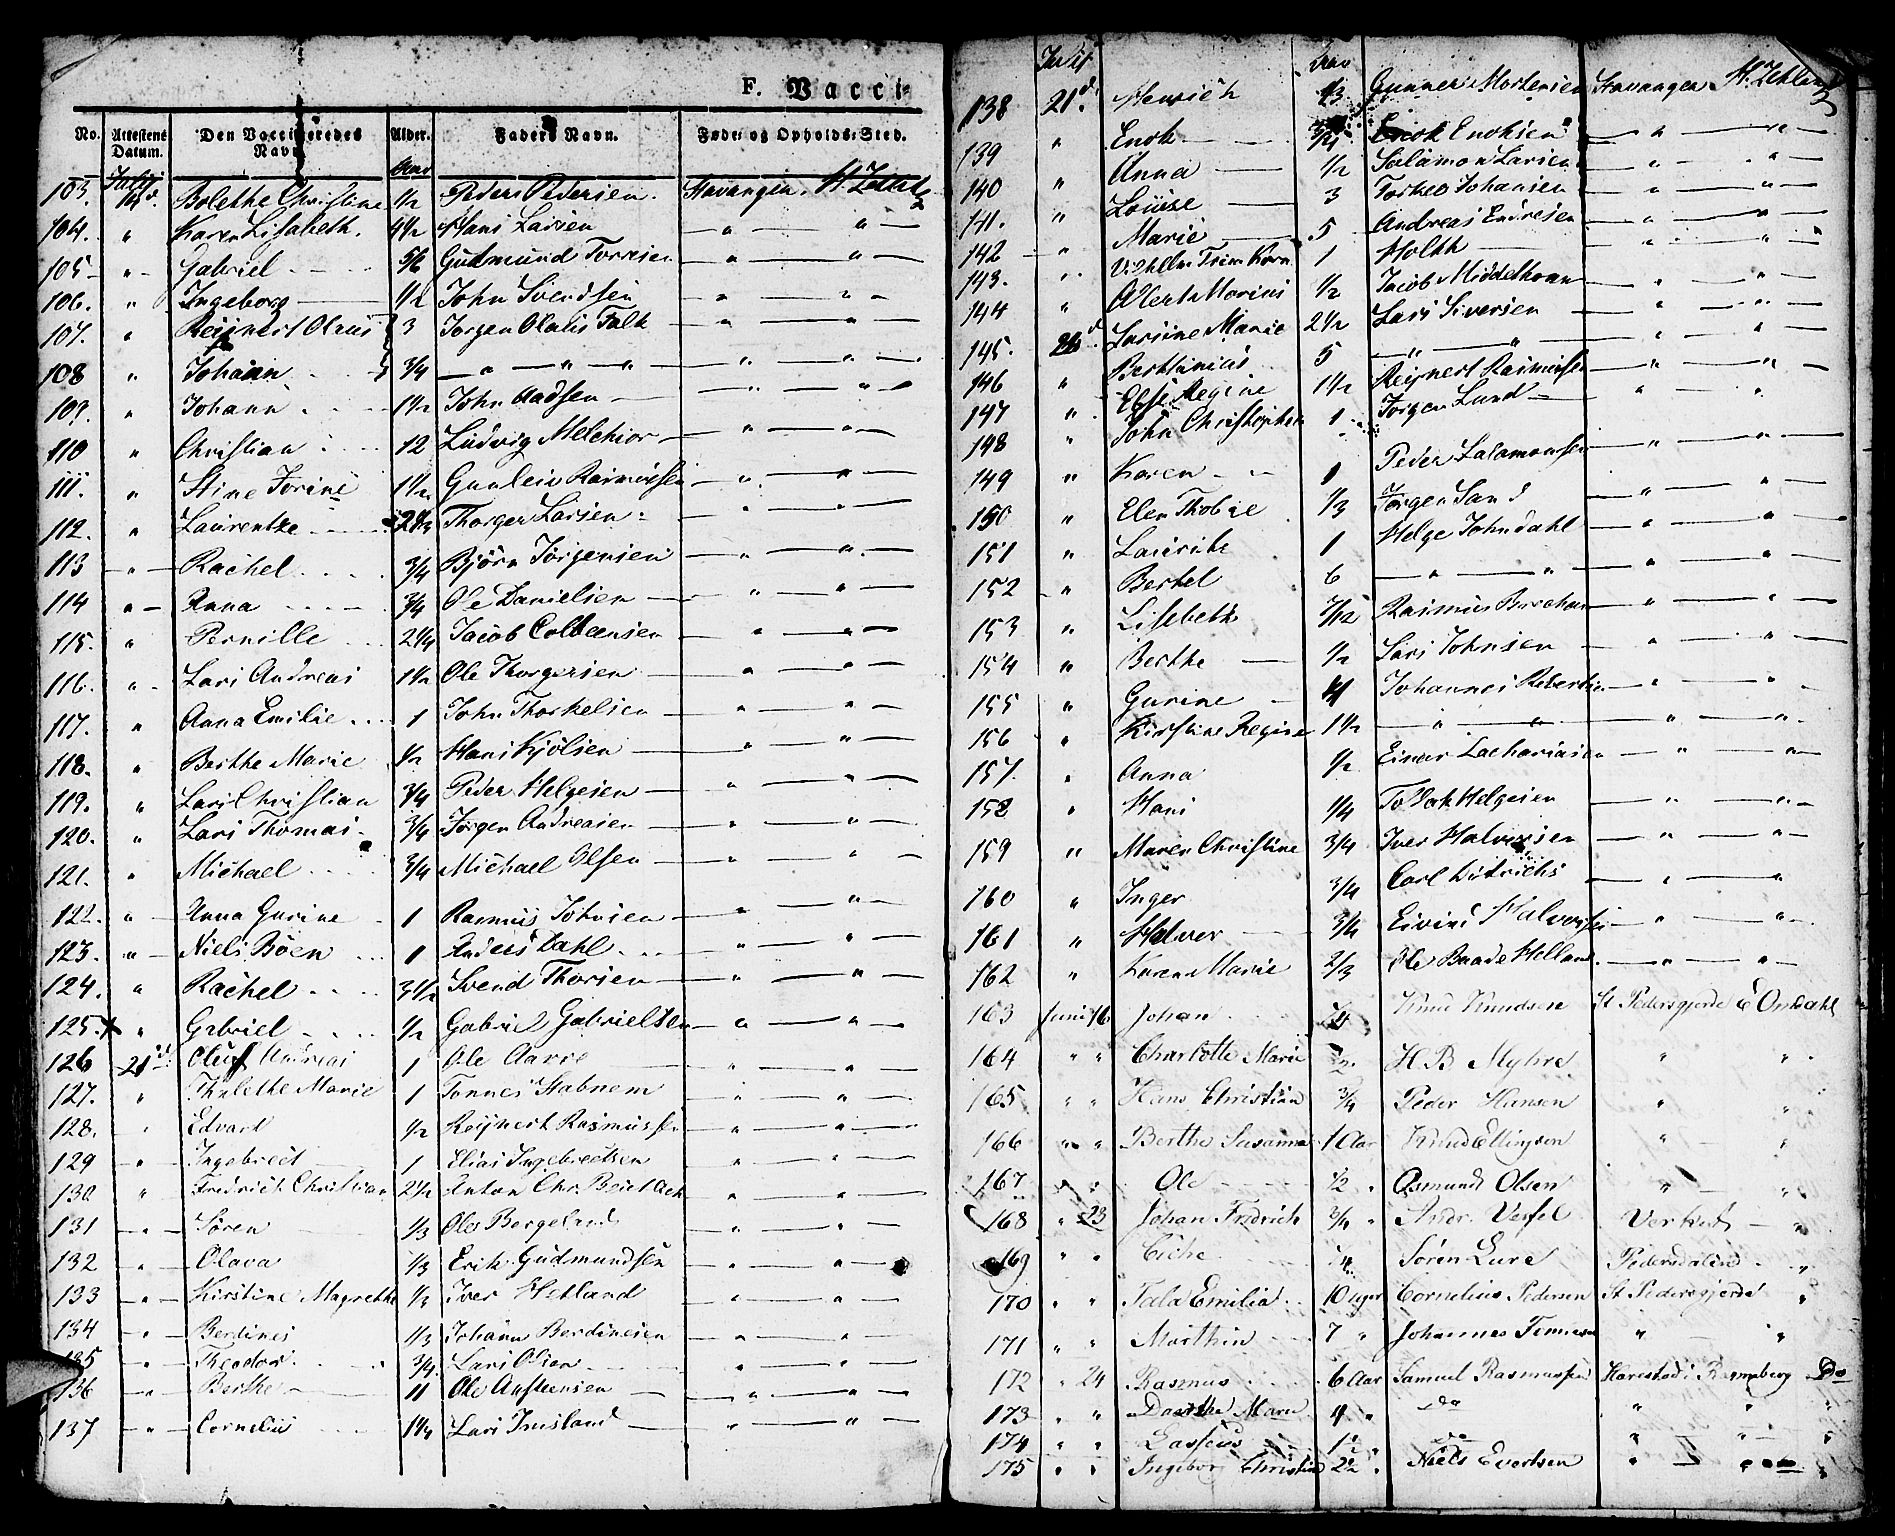 F. Vacci-
No. Attestens Datum. Den Vaccineredes Navn Alder. Faders Navn. Føde- og Opholds-Sted.
July Aar
103. 14d. Bolethe Christine 1/2 Peder Pedersen. Stavanger.
104. " Karen Lisabeth. 4 1/2 Hans Larsen — " — " —
105 " Gabriel 5/6 Gudmund Torresen — " — " —
106. " Ingeborg 1/2 John Svendsen — " — " —
107. " Reijnert Olaus 3 Jørgen Olaus Falk — " — " —
108 " Johan 3/4 — " — " — " " — " —
109. " Johann 1 1/2 John Aadsen — " — " —
110 " Christian 12 Ludvig Melchior — " — " —
111. " Stine Jorine 1 1/2 Gunleiv Rasmussen — " — " —
112. " Laurentze Thorger Larsen — " — " —
113 — " — Rachel 3/4 Bjørn Jørgensen — " — " —
114 " — Anna 3/4 Ole Danielsen — " — " —
115. " Pernille 2 1/4 Jacob Colbeensen — " — " —
116. " Lars Andreas 1 1/2 Ole Thorgersen — " — " —
117. " Anna Emilie 1 John Thorkelsen — " — " —
118. " Berthe Marie 1/2 Hans Kjølsen — " — " —
119. " Lars Christian 3/4 Peder Helgesen — " — " —
120. " Lars Thomas 3/4 Jørgen Andreasen — " — " —
121. " Michael 3/4 Michael Olsen — " — " —
122. " Anna Gurine 1 Rasmus Johnsen — " — " —
123. " Niels Boen 1 Anders Dahl — " — " —
124. " Rachel 3 1/2 Svend Thorsen — " — " —
125. " Gabriel 1/2 Gabriel Gabrielsen — " — " —
126 21d Oluf Andreas 1 Ole Aarre — " — " —
127. " Thalethe Marie 1 Tonnes Stabnem — " — " —
128. " Edvart 1/2 Reijnert Rasmussen — " — " —
129 " Ingebrect 1 Elias Ingebretsen — " — " —
130 " Fredrich Christian 2 1/2 Anton Chr. — " — " —
131 — " — Søren 1/3 Ole Bergeland — " — " —
132 — " — Olava 1/3 Erik Gudmundsen — " — " —
133 — " — Kirstine Magrethe 1/3 Iver Hetland — " — " —
134 — " — Berdines 1/3 Johann Berdinesen — " — " —
135 — " — Theodor 3/4 Lars Olsen — " — " —
136 — " — Berthe 11 Ole Austeensen — " — " —
137 — " — Cornelius 1 1/4 Lars Imsland — " — " —
138 21d. Henrich Gunner Mortensen Stavanger
139 " Enok 3/4 Enok Enoksen — " — " —
140 " Anna 1/2 Salamon Larsen — " — " —
141. " Louise 3 Torkel Johansen — " — " —
142 " Marie 5 Andreas Endresen — " — " —
143. " Vilhelm 1 Holth — " — " —
144 " Alert Marius 1/2 Jacob Middelthon — " — " —
145. Larsine Marie 2 1/2 Lars Siversen — " — " —
146 " Berthinias 5 — " — " — — " — " —
147 " Else Regine 1 1/2 Reijnert Rasmussen — " — " —
148 " John Christopher 1 Jørgen Lund — " — " —
149 " Karen 1 Peder Salamonsen — " — " —
150 " Elen Thobie 1/3 Jørgen Sand — " — " —
151 " 1 Helge Johndahl — " — " —
152 " Bertel 6 — " — " — — " — " —
153 " Lisebeth 7/12 Rasmus — " — " —
154 " Berthe 1/2 Lars Johnsen — " — " —
155 " Gurine 4 Johannes — " — " —
156 " Kirstine Regine 1 1/2 — " — " — — " — " —
157. " Anna 1/2 Einar Zachariasen — " — " —
158 " Hans 1/4 Helgesen — " — " —
159 " Maren Christine 3/4 Iver Halvorsen — " — " —
160 " Inger 3/4 Carl Ditrichs — " — " —
161 " Halvor 3/4 Eivind Halvorsen — " — " —
162 " Karen Marie 2/3 Ole Baade Helland — " — " —
163 Juni 16 Johan Knud Knudsen St Pedersgjerde
164 " " Charlotte Marie 1/2 H. B Myhre " "
165 " " Hans Christian 3/4 Peder Hansen " "
166 " " Berthe Susanna 1 Aar Knud Ellingsen " "
167 " " Ole 1/2 " Asmund Olsen " "
168 " 23 Johan Fredrich 3/4 " Andr. Vessel "
169 " " 1/4 Søren Lure Pedersdalen "
170 " " Tala Emilia 10 Uger Cornelius Pedersen St Pedersgjerde "
171 " " Morthin 7 " Johannes " "
172 " 24 Rasmus 6 Aar Samuel Rasmussen Harestad i Randeberg Do
173 " " Dorthe Marie 4 " do " " "
174 " " 1 " do " " "
175 " " Ingeborg Christine 2 1/2 " Niels Evertsen " " "